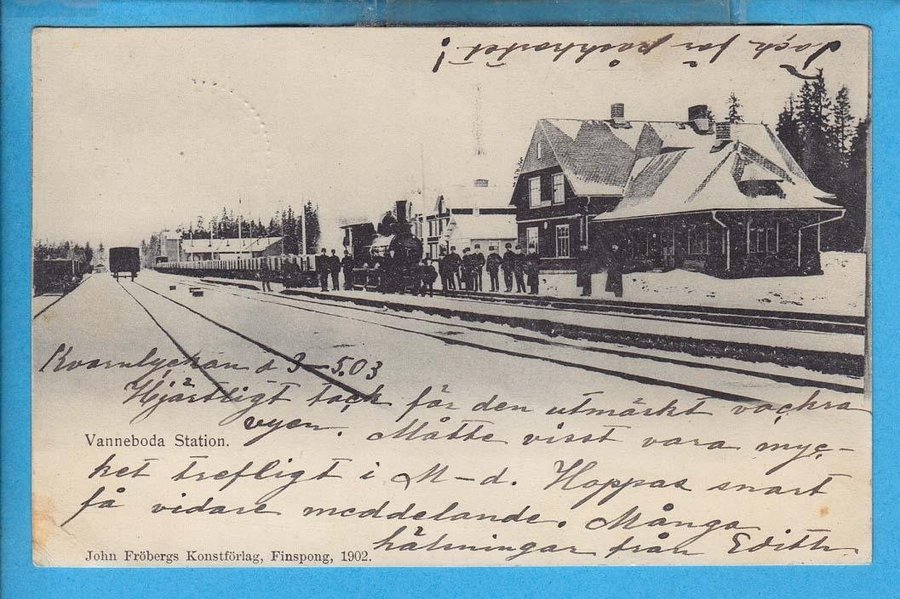 Tack för påkhortet!
Kvarnlyckan d 3-5.03
Hjärtligt tack för den utmärkt vackra
vyen. Måtte visst vara myc-
Vanneboda Station.
ket trefligt i M-d. Hoppas snart
få vidare meddelande. Många
hälsningar från Edith
John Fröbergs Konstförlag, Finspong, 1902.